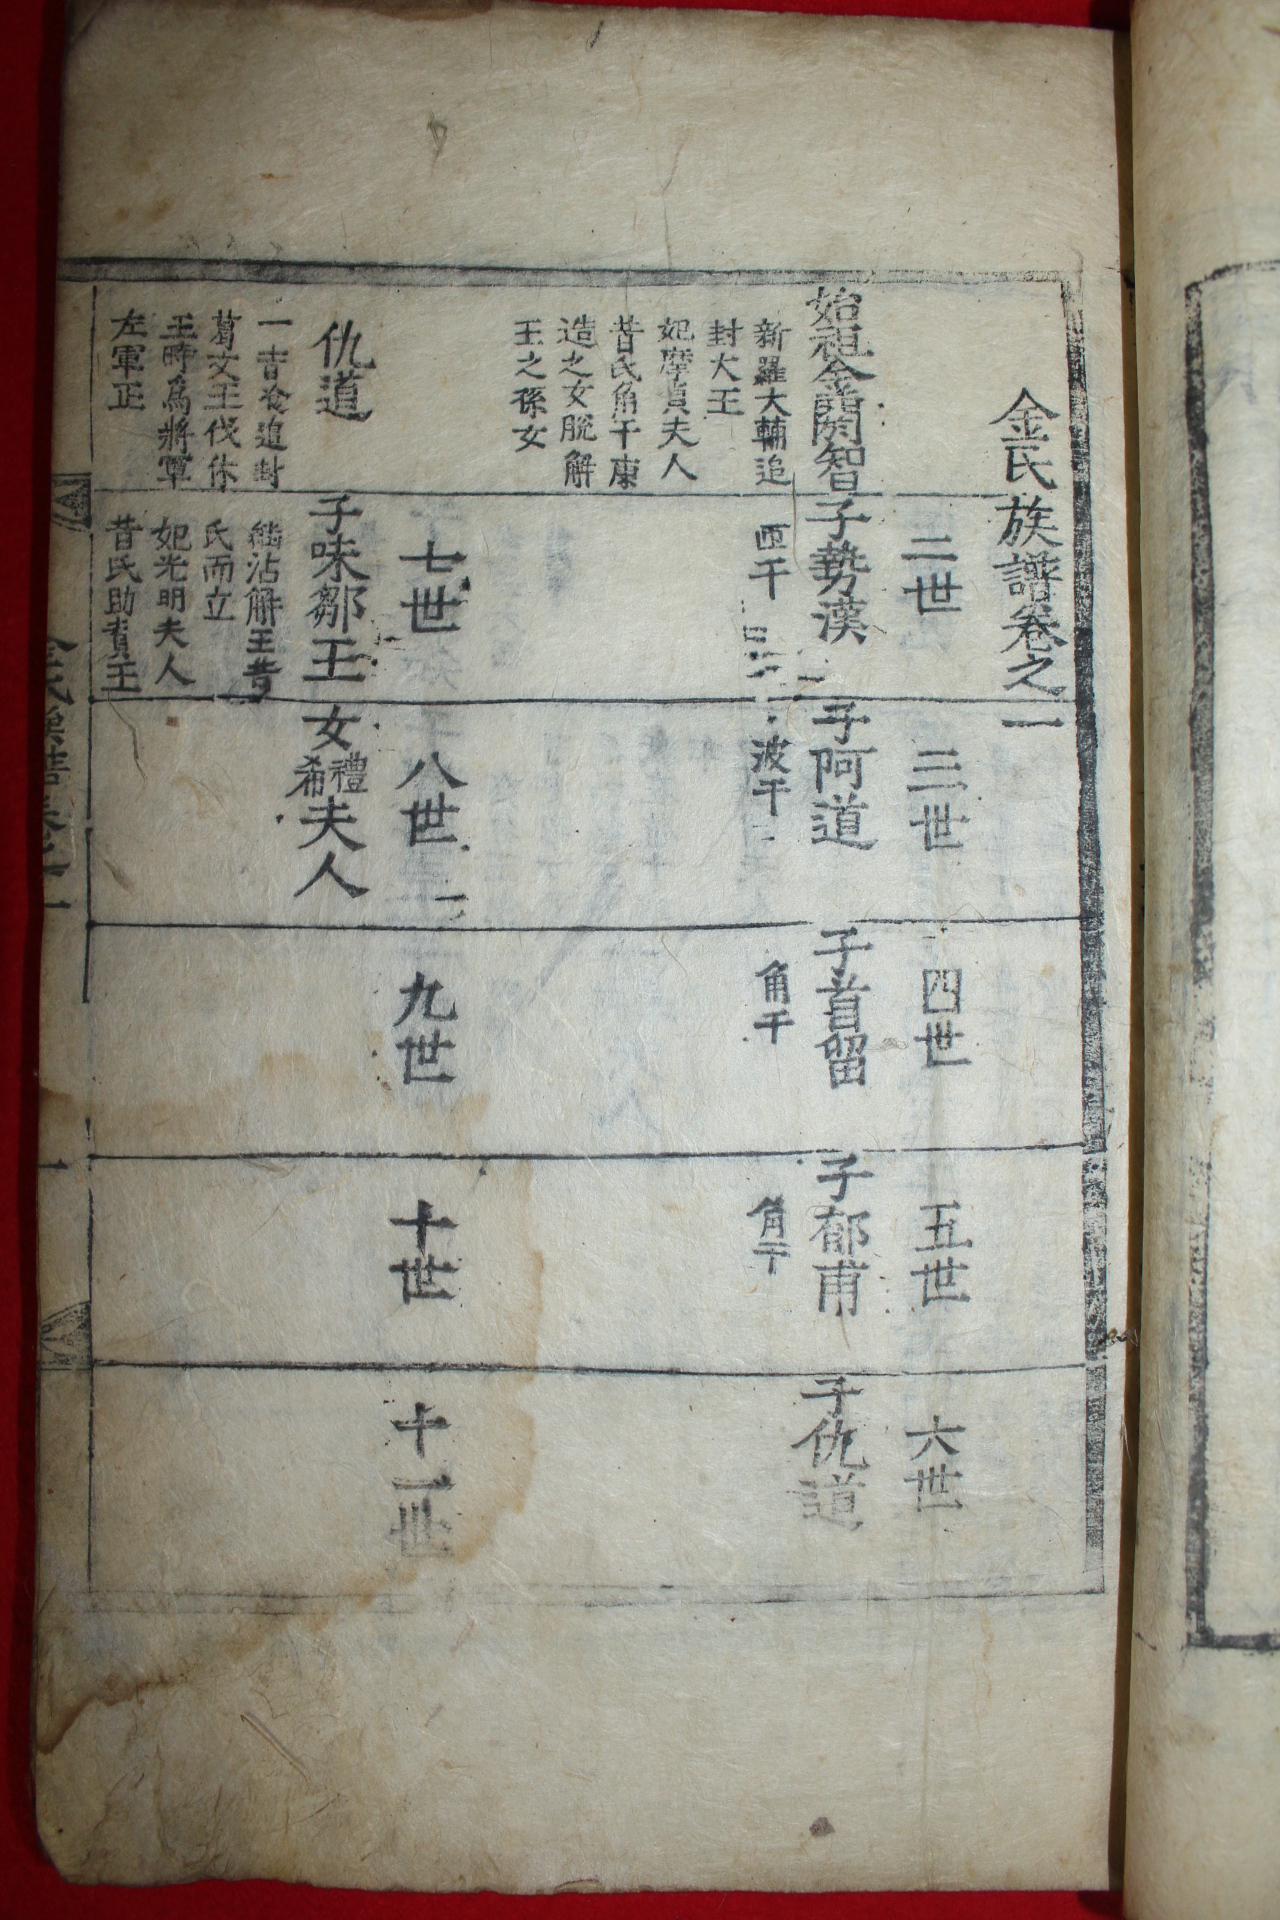 金氏族譜卷之一
二世
三世
四世
五世
六世
始祖金閼智
新羅大輔追
封大王
妃摩貞夫人
昔氏角干康
造之女脫解
王之孫女
子勢漢
匝干
子阿道
波干
子首留
角干
子郁甫
角干
子仇道
七世
八世
九世
十世
十一世
仇道
一吉飡追封
葛文王伐休
王時爲將軍
左軍正
子味鄒王
繼沾解王昔
氏而立
妃光明夫人
昔氏助賁王
女禮希夫人
金氏族譜卷之一
一